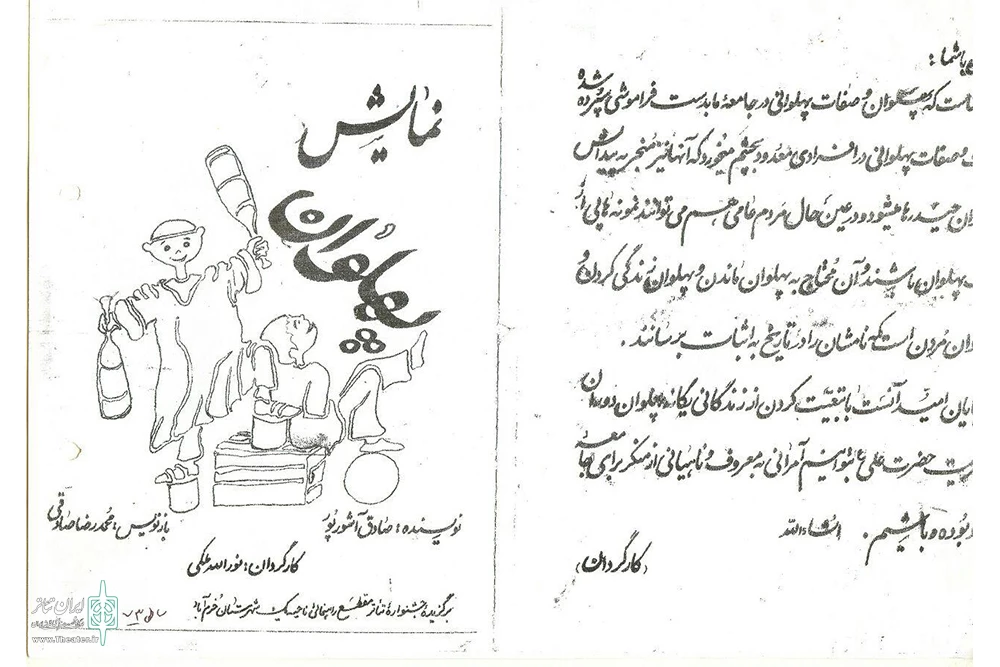 نمایش
پهلوان
نویسنده: صادق آشورپور
بازنویس: محمدرضا صادقی
کارگردان: نورالله ملکی
برگزیده جشنواره تئاتر مقطع راهنمائی ناحیه یک شهرستان خرم آباد
ایران تئاتر
www.Theater.ir
باشما:
که پهلوان و صفات پهلوانی در جامعهٔ ما بدست فراموشی سپرده شده
و صفات پهلوانی در افرادی معدود بچشم میخورد که آنها نیز منجر به پیدایش
میشود و در عین حال مردم عامی هم می توانند نمونه هایی از
پهلوان باشند و آن محتاج به پهلوان ماندن و پهلوان زندگی کردن و
مردن است که نامشان را در تاریخ به اثبات برسانند.
امید آنست با تبعیّت کردن از زندگانی یگانه پهلوان دوران
حضرت علی ع بتوانیم آمرانی به معروف و ناهیانی از منکر برای جامعه
بوده و باشیم. انشاءالله
(کارگردان)